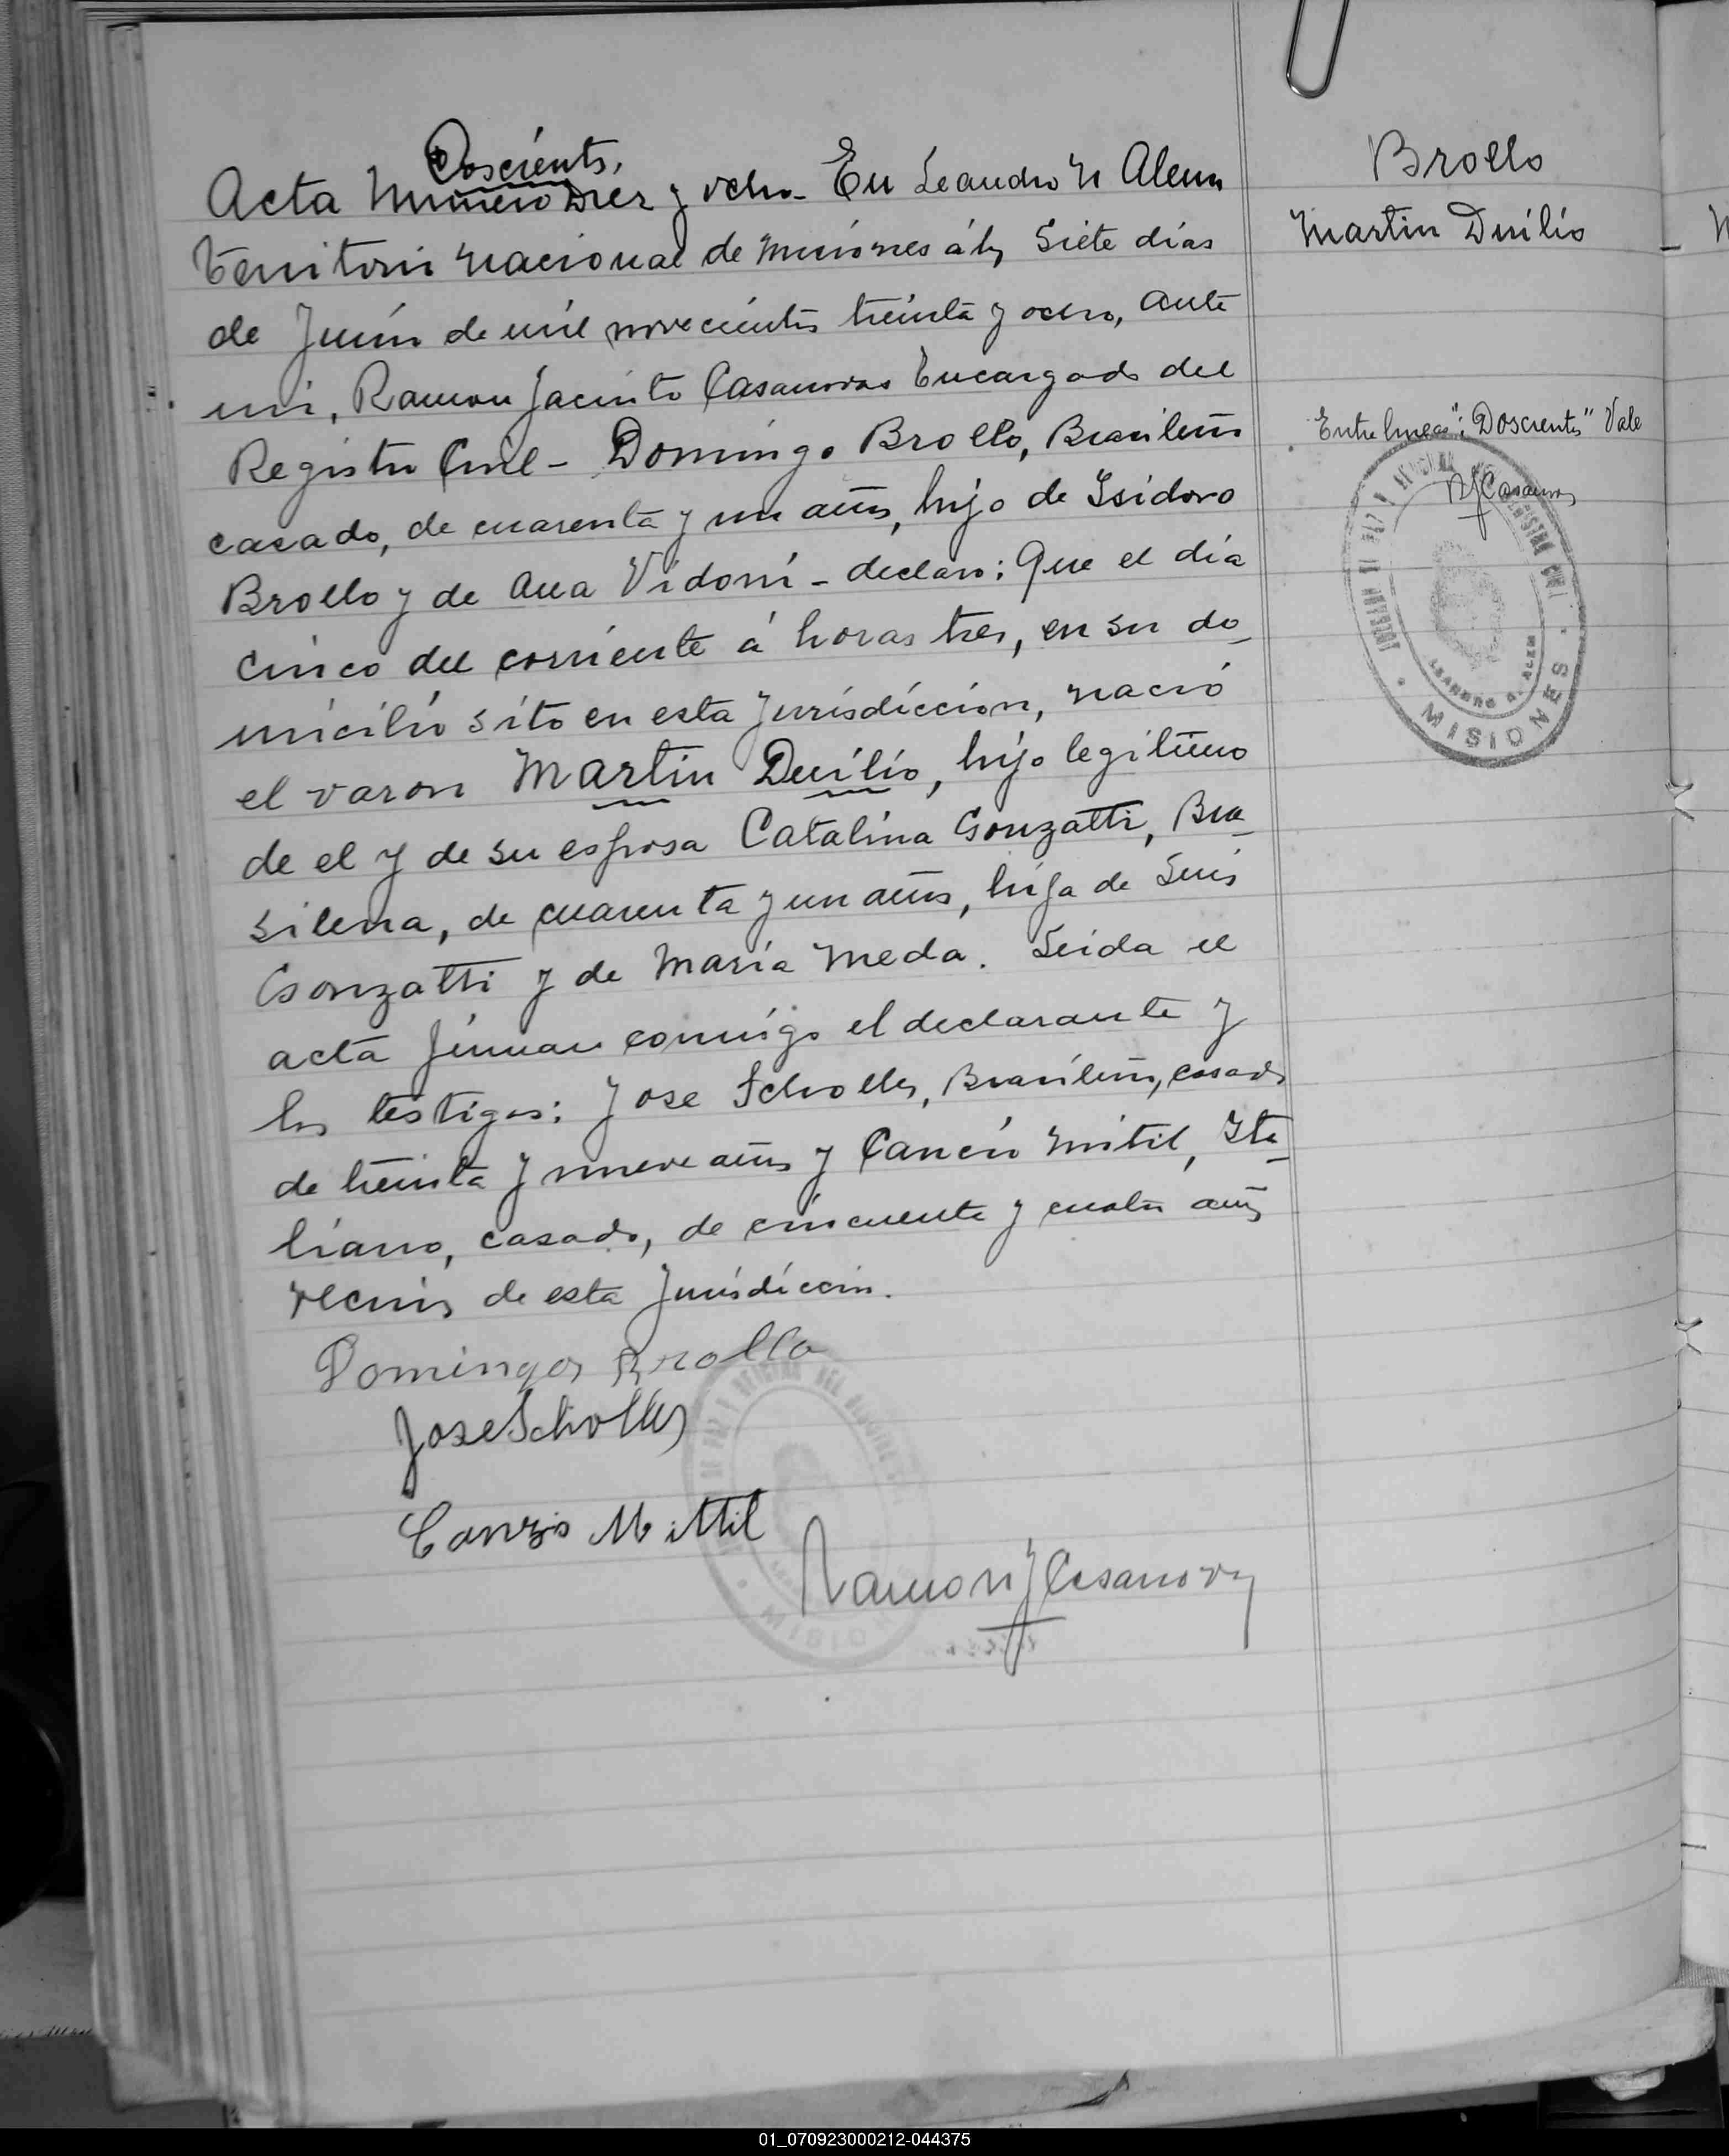 Doscientos,
Acta Número Diez y ocho - En Leandro N Alem
Territorio Nacional de Misiones á los Siete días
de Junio de mil novecientos treinta y ocho, ante
mi, Ramon Jacinto Casanovas Encargado del
Registro Civil - Domingo Brollo, Brasileño
casado, de cuarenta y un años, hijo de Isidoro
Brollo y de Ana Vidoni - declaro: Que el día
cinco del corriente á horas tres, en su do_
micilio sito en esta Jurisdiccion, nació
el varon Martin Duilio, hijo legitimo
de el y de su esposa Catalina Gonzatti, Bra_
silena, de cuarenta y un años, hija de Luis
Gonzatti y de María Meda. Leida el
acta firman conmigo el declarante y
los testigos: Jose Scholles, Brasileño, casado
de treinta y nueve años y Cancio Mitil, Ita_
liano, casado, de cincuenta y cuatro años
vecinos de esta Jurisdiccion.
Domingos Brollo
Jose Scholles
Canzio Mittil
Ramon J Casanovas
Brollo
Martin Duilio
Entre lineas: "Doscientos" Vale
RJCasanovas
JUZGADO DE PAZ Y OFICINA DEL REGISTRO CIVIL
LEANDRO N. ALEM
MISIONES
01_070923000212-044375